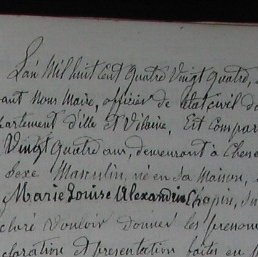 L'an Mil huit Cent Quatre Vingt Quatre,
vant Nous Maire, officier de l'état civil d
partement d'Ille et Vilaine, Est Compar
Vingt Quatre ans, demeurant à Chene
Sexe Masculin, né en Sa Maison,
Marie Louise Alexandrine Chapin, Su
claré Vouloir donner les prénom
claration et présentation faites en